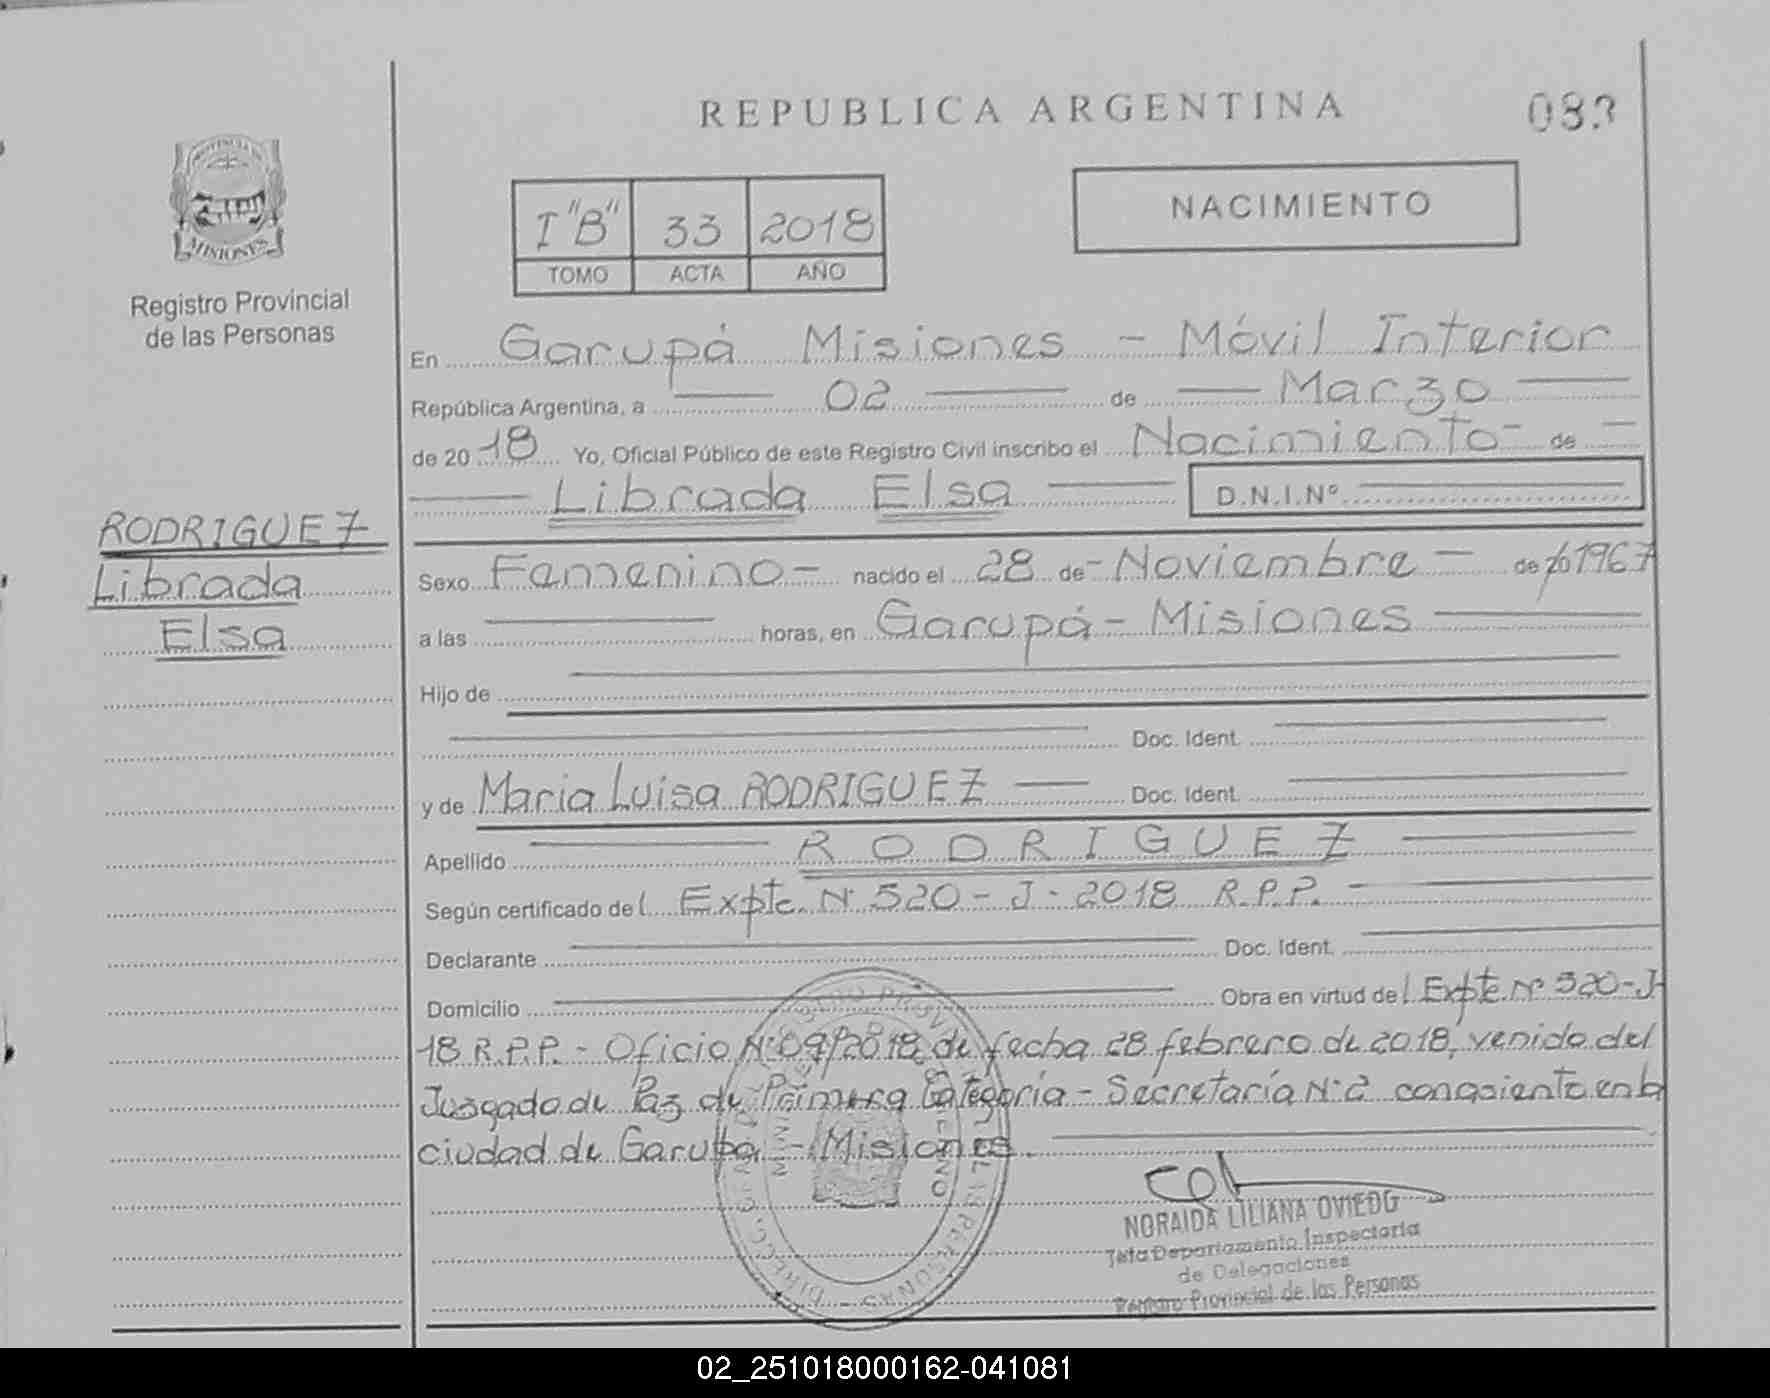 REPUBLICA ARGENTINA
083
PROVINCIA DE
MISIONES
Registro Provincial
de las Personas
I "B" 33 2018
TOMO ACTA AÑO
NACIMIENTO
En Garupá Misiones - Móvil Interior
República Argentina, a 02 de Marzo
de 20 18 Yo, Oficial Público de este Registro Civil inscribo el Nacimiento - de -
Librada Elsa D.N.I.Nº
RODRIGUEZ
Librada
Elsa
Sexo Femenino - nacido el 28 de - Noviembre - de 20 1967
a las horas, en Garupá - Misiones
Hijo de
Doc. Ident.
y de Maria Luisa RODRIGUEZ Doc. Ident.
Apellido RODRIGUEZ
Según certificado del Expte. Nº 520 - J - 2018 R.P.P. -
Declarante Doc. Ident.
Domicilio Obra en virtud del Expte. nº 520-J-
18 R.P.P. - Oficio Nº 09/2018 de fecha 28 febrero de 2018, venido del
Juzgado de Paz de Primera Categoría - Secretaría Nº 2 con asiento en la
ciudad de Garupá - Misiones.
NORAIDA LILIANA OVIEDO
Jefa Departamento Inspectoría
de Delegaciones
Registro Provincial de las Personas
02_251018000162-041081